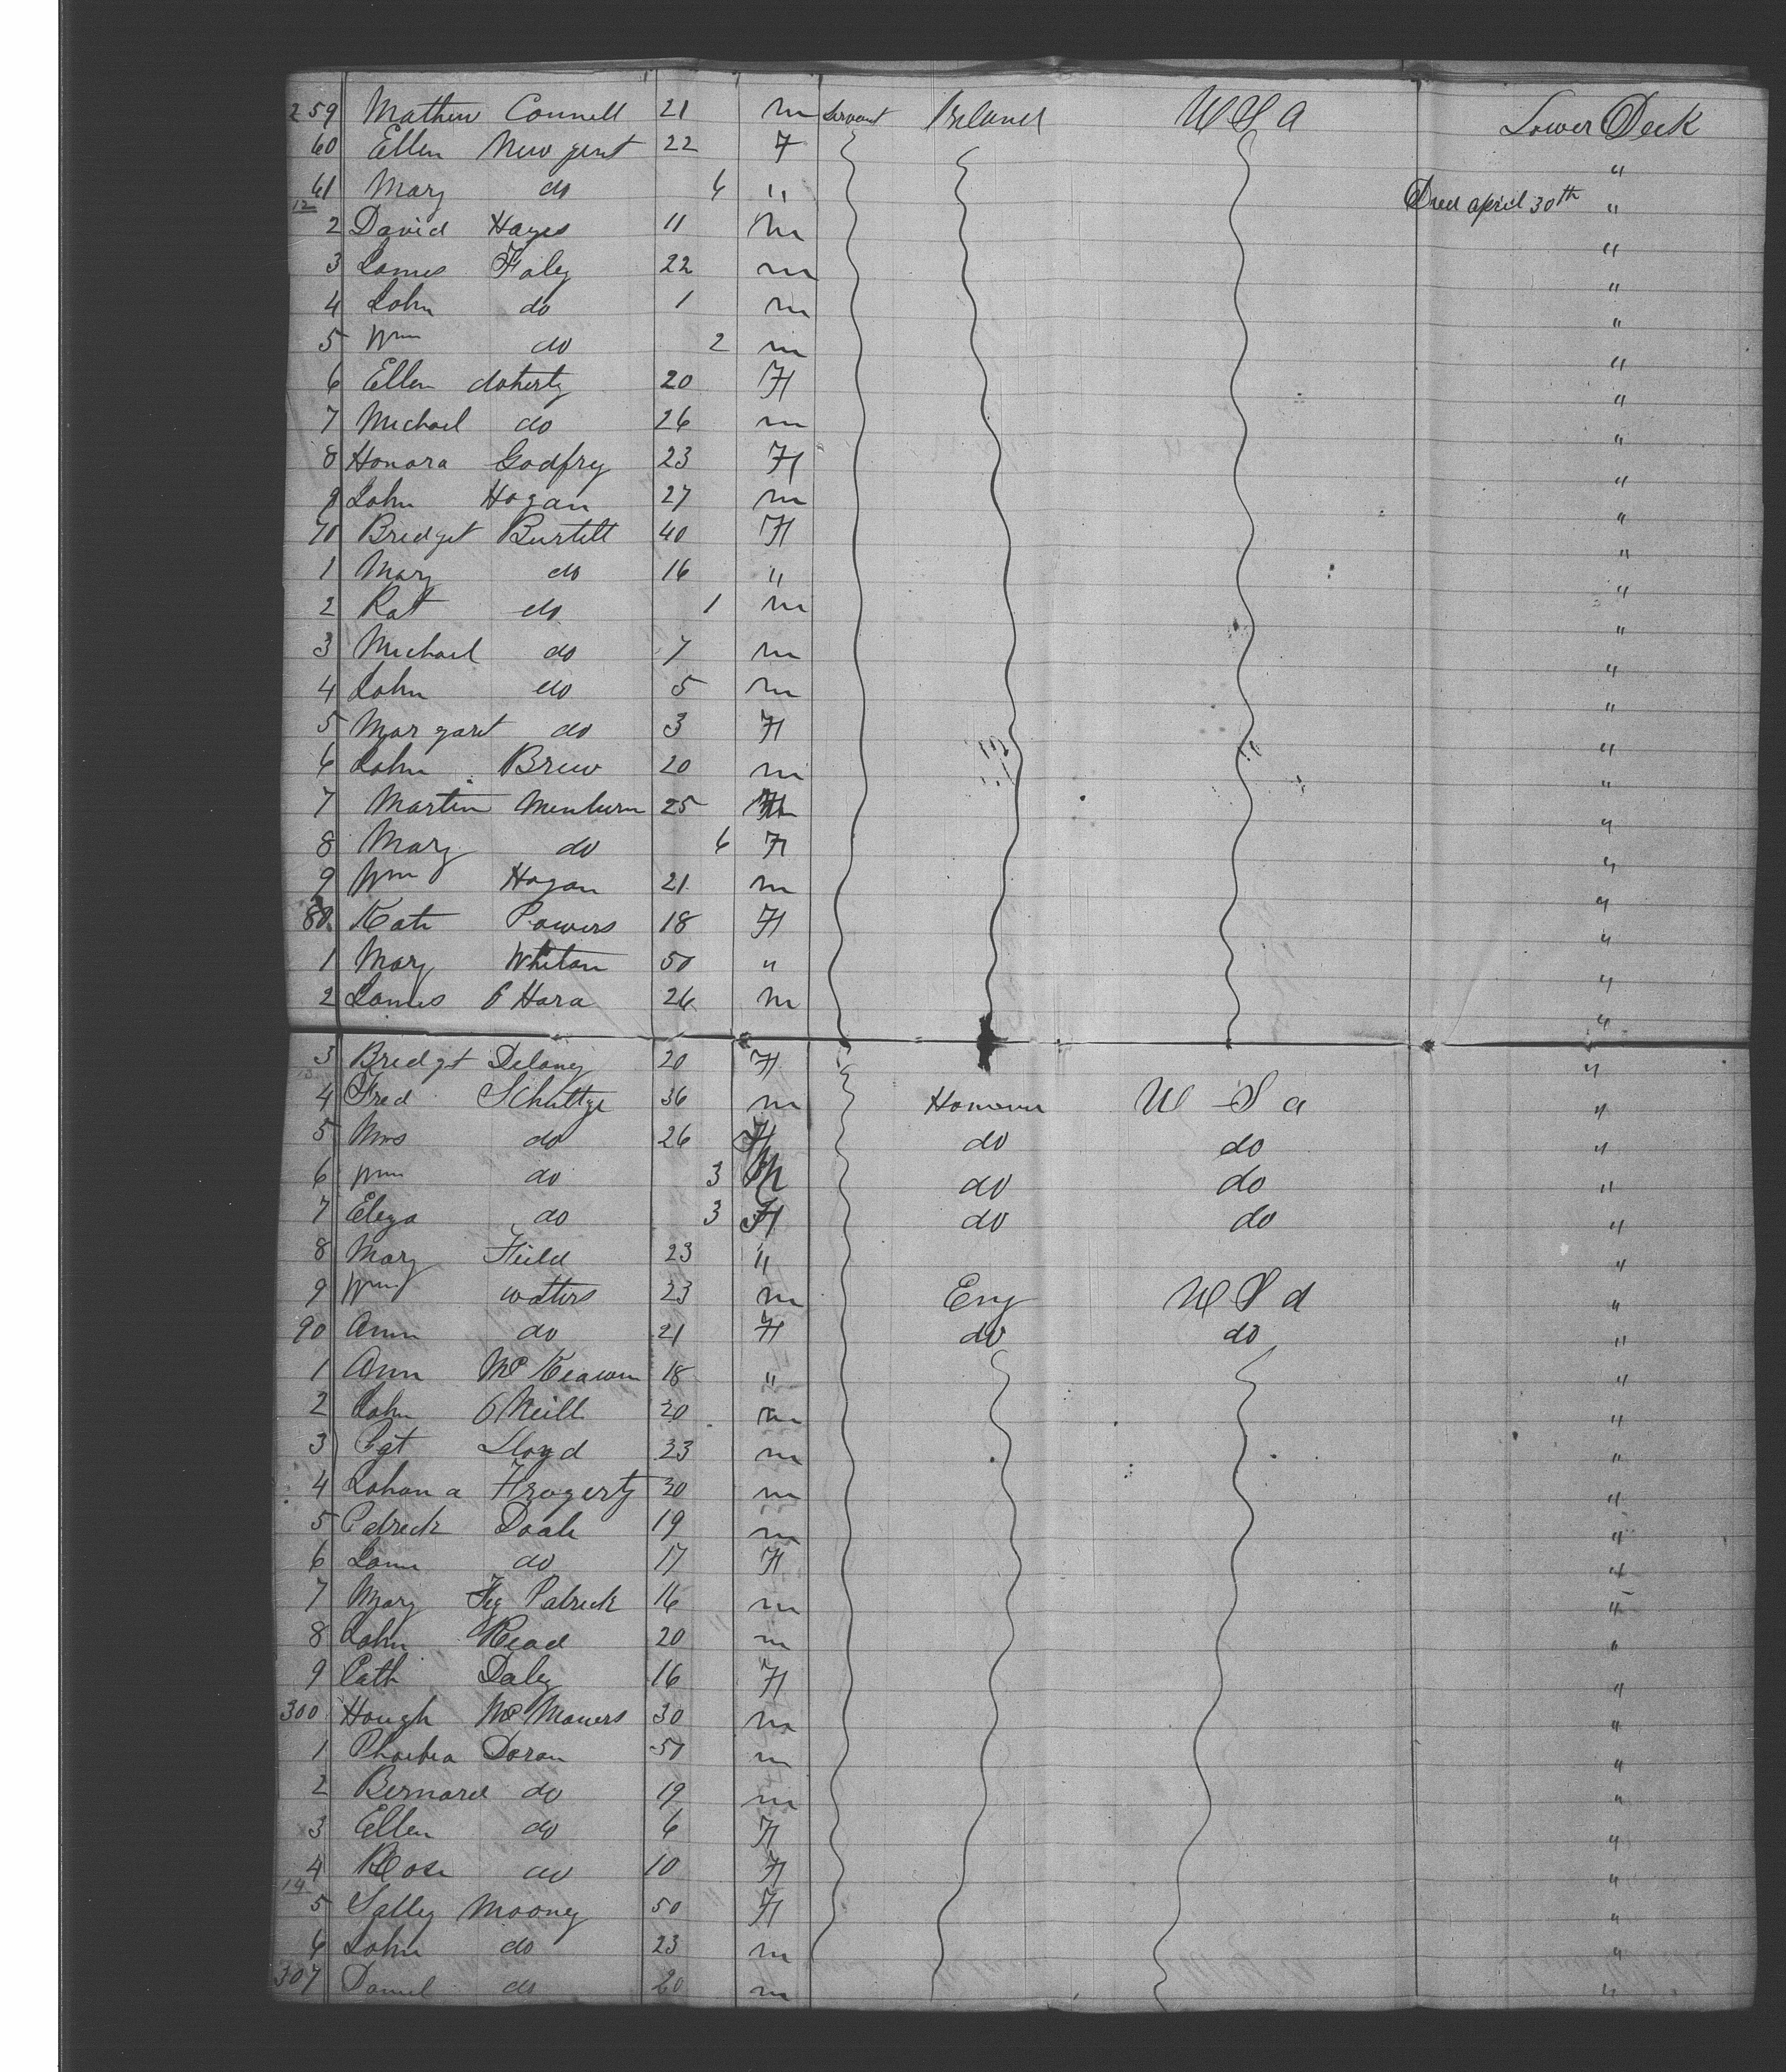 259 Mathew Connell 21 m Servant Ireland U S A Lower Deck
60 Ellen New gent 22 F "
61 Mary do 6 " Died april 30th "
12
2 David Hayes 11 m "
3 James Foley 22 m "
4 John do 1 m "
5 Wm do 2 m "
6 Ellen doherty 20 F "
7 Michael do 26 m "
8 Honora Godfrey 23 F "
9 John Hogan 27 m "
70 Bredget Burtett 40 F "
1 Mary do 16 " "
2 Pat do 1 m "
3 Michael do 7 m "
4 John do 5 m "
5 Margaret do 3 F "
6 John Brew 20 m "
7 Martin 25 "
8 Mary do 6 F "
9 Wm Hogan 21 m "
80 Kate Powers 18 F "
1 Mary Whitan 50 " "
2 James O Hara 26 m "
3 Bredgt Delany 20 F "
4 Fred Schultze 36 m Hanover U S a "
5 Mrs do 26 F do do "
6 Wm do 3 M do do "
7 Eliza do 3 F do do "
8 Mary Field 23 " "
9 Wm waters 23 m Eng U S A "
90 Ann do 21 F do do "
1 Ann Mc Keawn 18 " "
2 John O Neill 20 m "
3 Pgt Lloyd 23 m "
4 Johana 30 m "
5 Patrick Doale 19 m "
6 Jane do 17 F "
7 Mary Fiz Patrick 16 m "
8 John Read 20 m "
9 Cath Daley 16 F "
300 Hough Mc Maners 30 m "
1 Phoebea Doran 50 m "
2 Bernard do 19 m "
3 Ellen do 6 F "
4 Rose do 10 F "
14
5 Salley Mooney 50 F "
6 John do 23 m "
307 Daniel do 20 m "